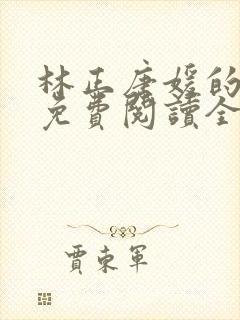 林正唐媛的
免費閱讀全
賈東軍